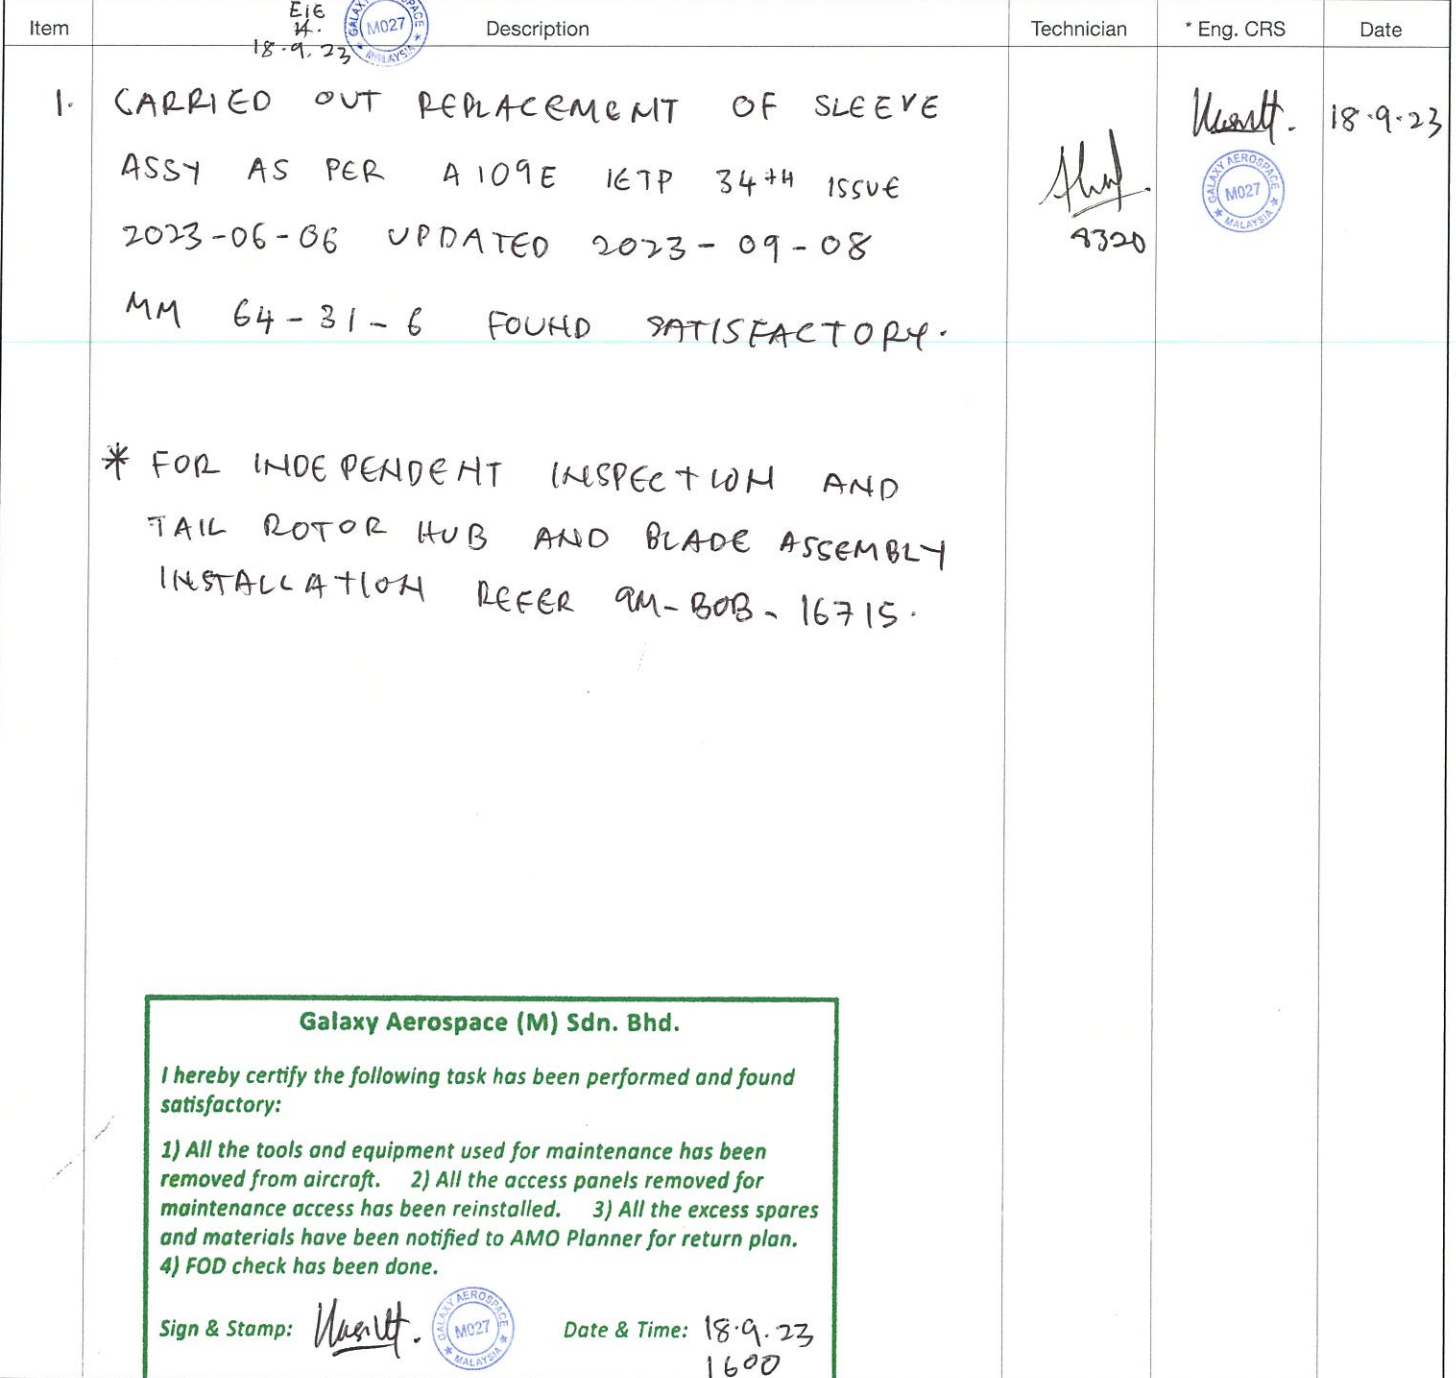 EIE
18.9.23
GALAXY AEROSPACE M027 MALAYSIA
Item Description Technician * Eng. CRS Date
1. CARRIED OUT REPLACEMENT OF SLEEVE
ASSY AS PER A109E IETP 34TH ISSUE
2023-06-06 UPDATED 2023-09-08
MM 64-31-6 FOUND SATISFACTORY.
18.9.23
GALAXY AEROSPACE M027 MALAYSIA
* FOR INDEPENDENT INSPECTION AND
TAIL ROTOR HUB AND BLADE ASSEMBLY
INSTALLATION REFER 9M-BOB-16715.
Galaxy Aerospace (M) Sdn. Bhd.
I hereby certify the following task has been performed and found
satisfactory:
1) All the tools and equipment used for maintenance has been
removed from aircraft. 2) All the access panels removed for
maintenance access has been reinstalled. 3) All the excess spares
and materials have been notified to AMO Planner for return plan.
4) FOD check has been done.
Sign & Stamp: GALAXY AEROSPACE M027 MALAYSIA Date & Time: 18.9.23
1600